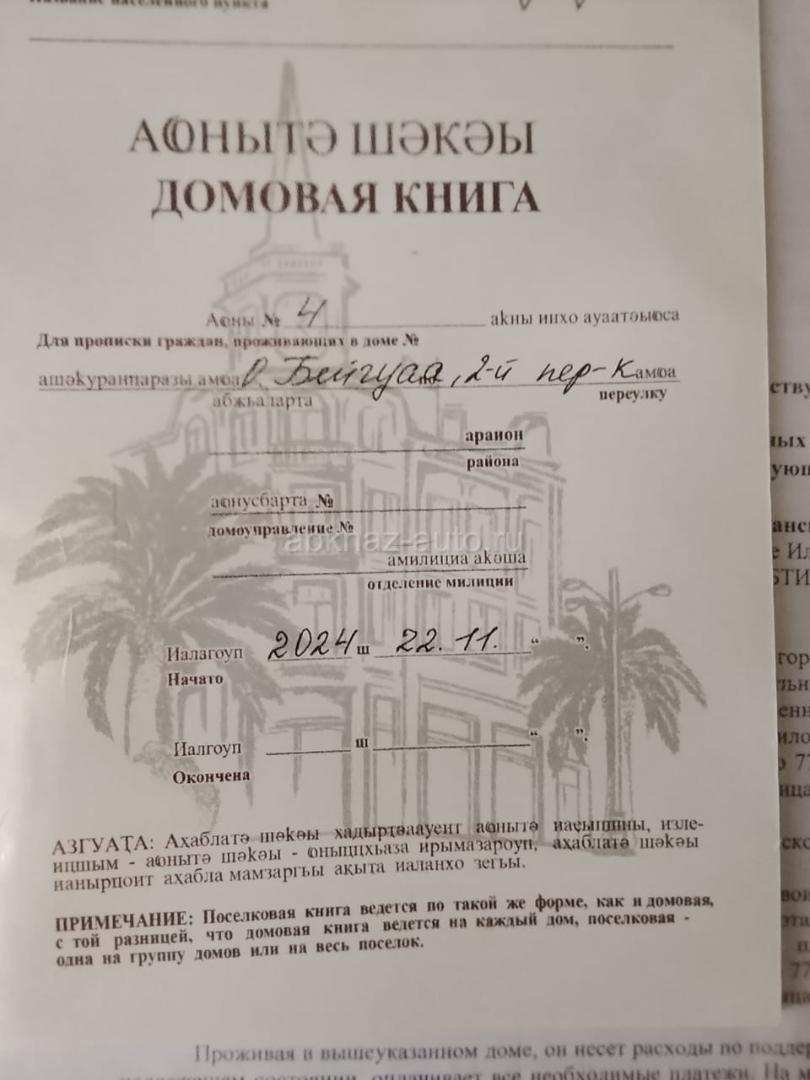 Название населенного пункта
АҨНЫТӘ ШӘҞӘЫ
ДОМОВАЯ КНИГА
Аҩны № 4 аҟны инхо ауаатәыҩса
Для прописки граждан, проживающих в доме №
ашәҟуранҵаразы амҩа Бейгуаа, 2-й пер-к амҩа
абжьаҵарҭа переулку
араион
района
аҩнусбарҭа №
домоуправление №
abkhaz-auto.ru
амилициа аҟәша
отделение милиции
Иалагоуп 2024 ш 22.11. “ ”.
Начато
Иалгоуп ш “ ”.
Окончена
АЗГУАҬА: Ахаблатә шәҟәы хадырҭәаауеит аҩнытә иаҿышшы, изле-
ицшым - аҩнытә шәҟәы - ҩныцԥхьаза ирымазароуп, ахаблатә шәҟәы
ианырԥоит ахабла мамзаргьы ақыҭа иаланхо зегьы.
ПРИМЕЧАНИЕ: Поселковая книга ведется по такой же форме, как и домовая,
с той разницей, что домовая книга ведется на каждый дом, поселковая -
одна на группу домов или на весь поселок.
Проживая в вышеуказанном доме, он несет расходы по поддер
состоянии, оплачивает все необходимые платежи. На м